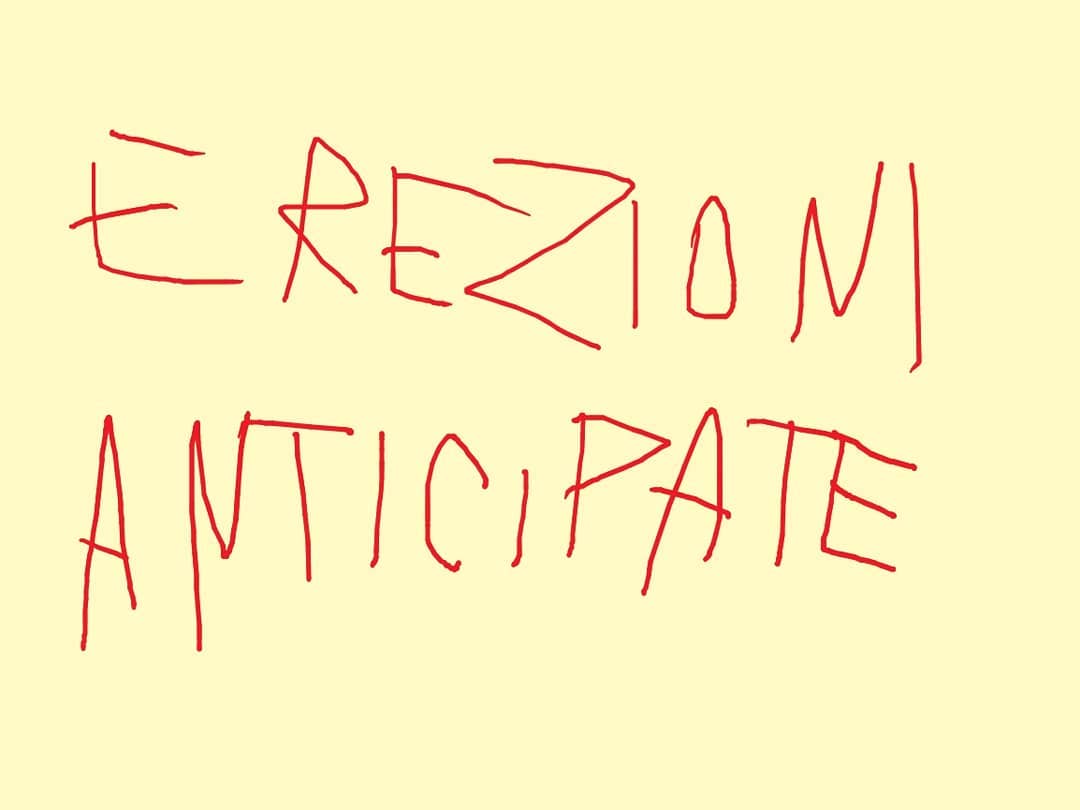 EREZIONI
ANTICIPATE